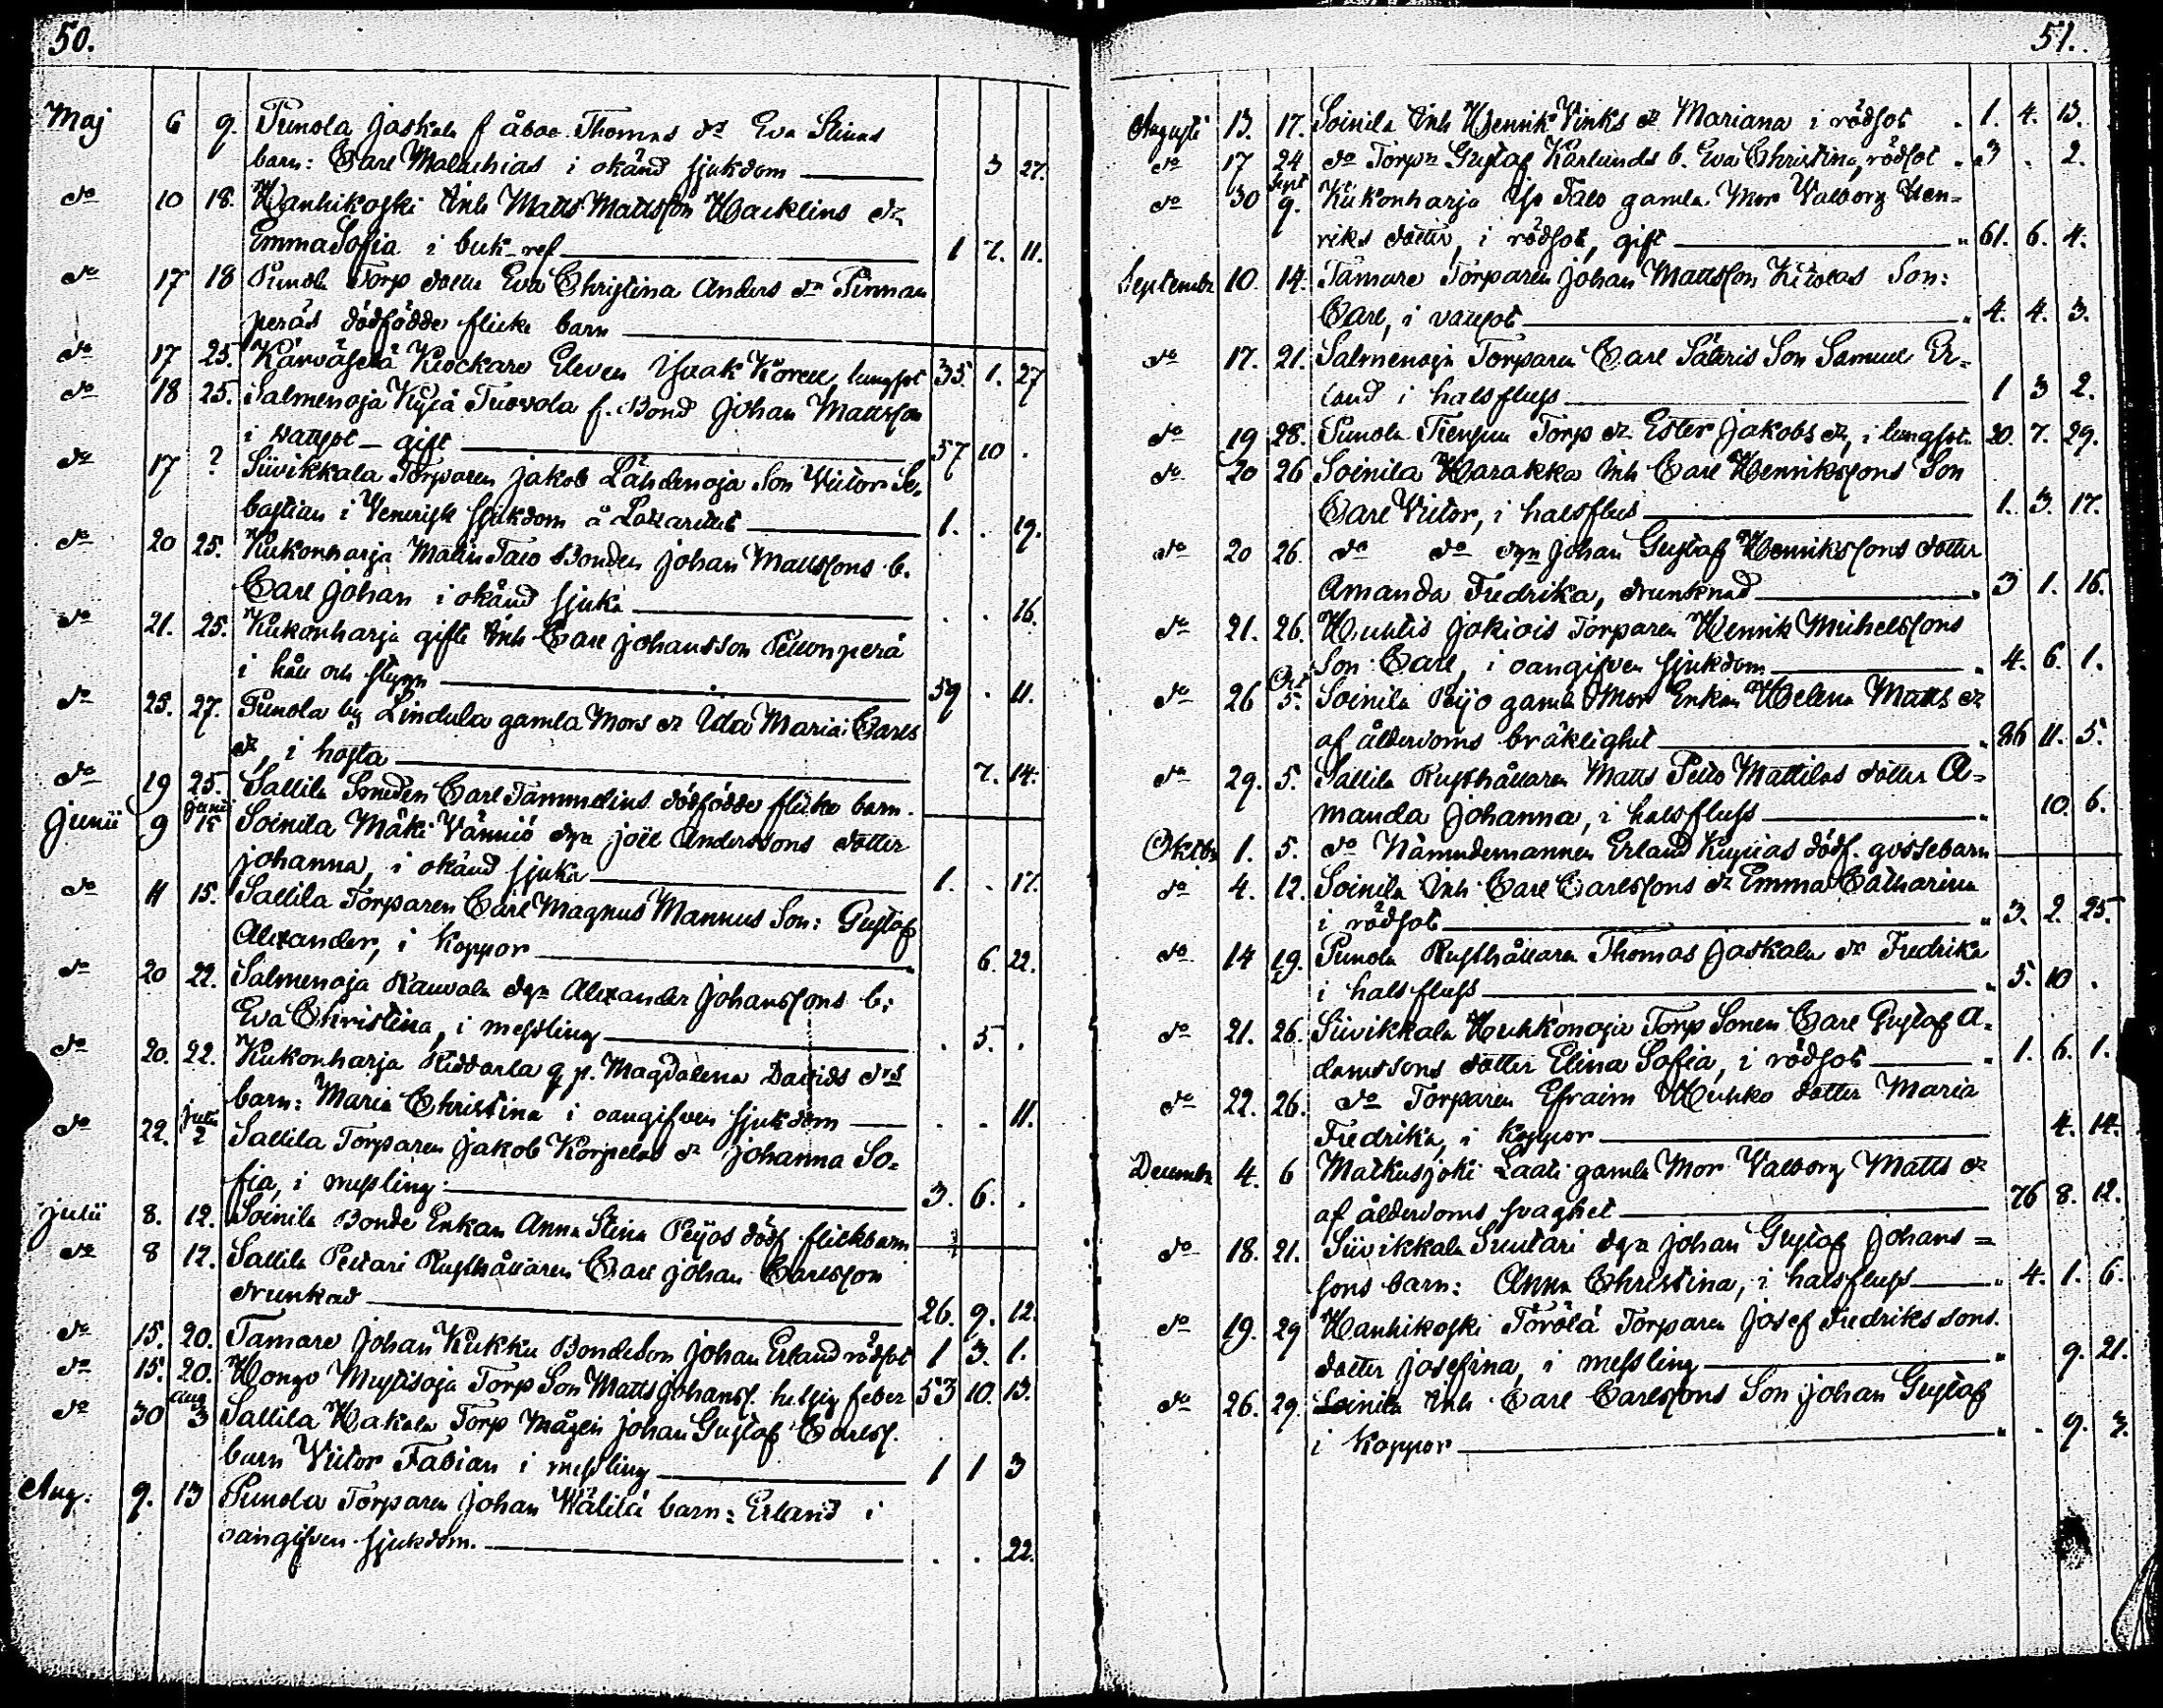 50.
Maj 6 9. Punola Jaskala f åboe Thomas dr Eva Stinas
barn: Carl Malachias i okänd sjukdom 3 27.
do 10 18. Hanhikoski Inh Matts Mattsson Hacklins dr
Emma Sofia i buk-ref 1 7. 11.
do 17 18 Punola Torp dotter Eva Christina Anders dr Pinnan
peräs dödfödde flicke barn
do 17 25. Kärväselä Klockare Eleven Isaak Korell, lungsot 35. 1. 27
do 18 25. Salmenoja Kylä Tuovola f. Bond Johan Mattsson
i vattsot - gift 57 10 .
do 17 ? Siivikkala Torparen Jakob Lähdenoja Son Victor Se-
bastian i Venerisk sjukdom å Lazarettet 1. . 19.
do 20 25. Kukonharja Matin Talo Bonden Johan Mattssons b.
Carl Johan i okänd sjuka . . 16.
do 21. 25. Kukonharja gifte Inh Carl Johansson Pellonperä
i håll och styng 59 . 11.
do 25. 27. Punola by Lindula gamla Mors dr Ida Maria Carls
dr, i hosta 7. 14.
do 19 25. Sallila Smeden Carl Tammelins dödfödde flicke barn.
Junii 9 Junii 15 Soinila Mäki Vänniö dgn Joël Anderssons dotter
Johanna, i okänd sjuka 1. . 17.
do 11 15. Sallila Torparen Carl Magnus Mannus Son: Gustaf
Alexander, i Koppor 6. 22.
do 20 22. Salmenoja Rauvala dgn Alexander Johanssons b:
Eva Christina, i messling . 5. .
do 20. 22. Kukonharja Kiddarla q p. Magdalena Davids drs
barn: Maria Christina i oangifven sjukdom . . 11.
do 22. Julii 2 Sallila Torparen Jakob Korpelas dr Johanna So-
fia, i messling: 3. 6. .
Julii 8. 12. Soinila Bonde Enkan Anna Stina Peijos dödf. flickbarn
do 8 12. Sallila Pettari Rusthållaren Carl Johan Carlsson
drunkad 26. 9. 12.
do 15. 20. Tamare Johan Kukku BondeSon Johan Erland rödsot 1 3. 1.
do 15. 20. Hongo Mustisoja Torp Son Matts Johanss. hetsig feber 53 10. 13.
do 30 Aug 3 Sallila Hakala Torp Mågen Johan Gustaf Carlss.
barn Victor Fabian i messling 1 1 3
Aug. 9. 13 Punola Torparen Johan Wälilä barn: Erland i
oangifven sjukdom. . . 22.
51.
Augusti 13. 17. Soinila Inh Henrik Vinks dr Mariana i rödsot 1. 4. 13.
do 17 24 do Torpn Gustaf Karlunds b. Eva Christina, rödsot 3 . 2.
do 30 Sept 9. Kukonharja Talo gamla Mor Valborg Hen-
riks dotter, i rödsot, gift 61. 6. 4.
September 10. 14. Tamare Torparen Johan Mattsson Kiwlas Son:
Carl, i vattsot 4. 4. 3.
do 17. 21. Salmenoja Torparen Carl Säteris Son Samuel Er-
land i halsfluss 1 3 2.
do 19 28. Punola Torp dr Ester Jakobs dr, i lungsot 20. 7. 29.
do 20 26 Soinila Harakka Inh Carl Henrikssons Son
Carl Victor, i halsflus 1. 3. 17.
do 20 26. do do dgn Johan Gustaf Henrikssons dotter
Amanda Fredrika, drunknad 3 1. 16.
do 21. 26. Huhtis Jokiois Torparen Henrik Michelssons
Son Carl, i oangifven sjukdom 4. 6. 1.
do 26 Oct 5. Soinila Peijo gamla Mor Enkan Helena Matts dr
af ålderdoms bräklighet 86 11. 5.
do 29. 5. Sallila Rusthållaren Matts Mattilas dotter A-
manda Johanna, i halsfluss 10. 6.
Oktober 1. 5. do Nämndemannen Erland Kupiias dödf. gossebarn
do 4. 12. Soinila Inh Carl Carlssons dr Emma Catharina
i rödsot 3. 2. 25.
do 14 19. Punola Rusthållaren Thomas Jaskala dr Fredrika
i halsfluss 5. 10 .
do 21. 26. Siivikkala Huhkonoja Torp Sonen Carl Gustaf A-
damssons dotter Elina Sofia, i rödsot 1. 6. 1.
do 22. 26. do Torparen Efraim Huhko dotter Maria
Fredrika, i Koppor 4. 14.
December 4. 6 Matkusjoki Laati gamla Mor Valborg Matts dr
af ålderdoms svaghet 76 8. 12.
do 18. 21. Siivikkala Suutari dgn Johan Gustaf Johans=
sons barn: Anna Christina, i halsfluss 4. 1. 6.
do 19. 29 Hanhikoski Törölä Torparen Josef Fredrikssons
dotter Josefina, i messling 9. 21.
do 26. 29. Soinila Inh Carl Carlssons Son Johan Gustaf
i Koppor . 9. 3.